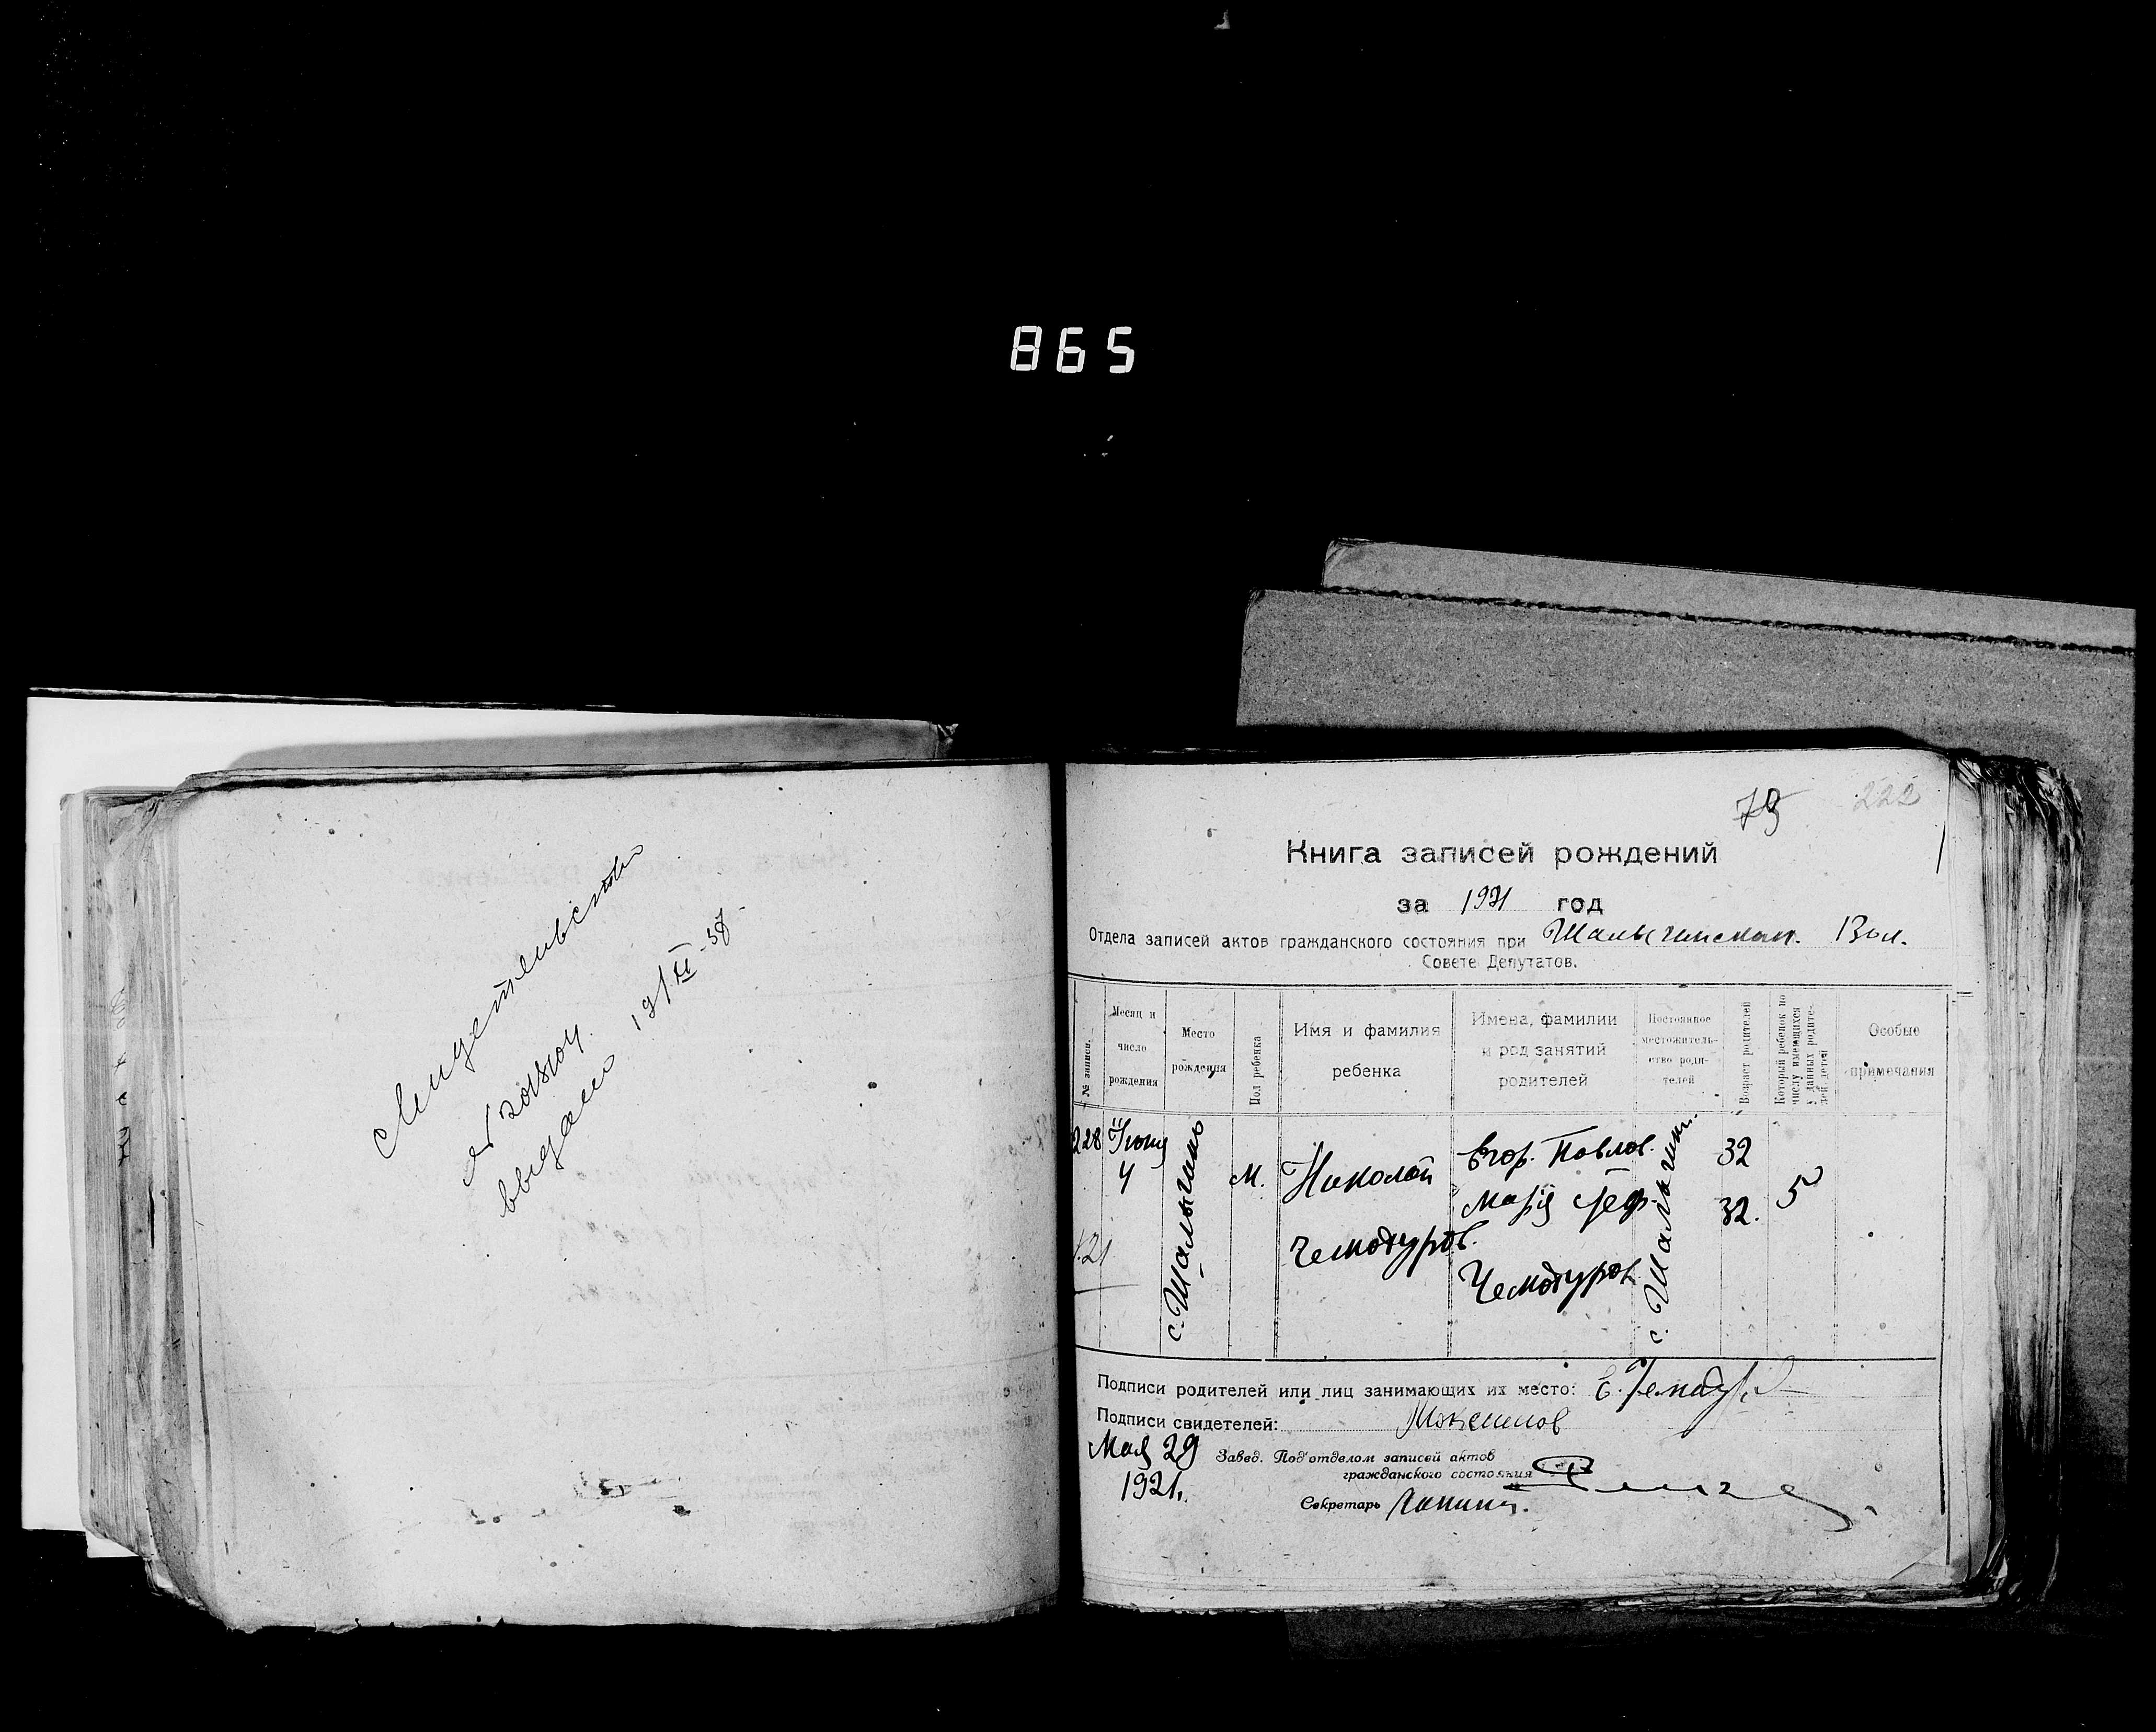 865
Свидетельство
выдано 19/XI-38
79
222
Книга записей рождений
за 1921 год
Отдела записей актов гражданского состояния при Шалыгинском. Вол.
Совете Депутатов.
№ записи.
Месяц и число рождения
Место рождения
Пол ребенка
Имя и фамилия ребенка
Имена, фамилии и род занятий родителей
Постоянное местожительство родителей
Возраст родителей
Который ребенок по числу имеющихся у данных родителей детей
Особые примечания
228
4
с. Шалыгино
М.
Николай
Чемодуров.
Егор. Павлов.
Мария
Чемодуров
с. Шалыгин.
32
32.
5
Подписи родителей или лиц занимающих их место: Е. Чемодур
Подписи свидетелей:
Мая 29
1921.
Завед. Под'отделом записей актов
гражданского состояния
Секретарь